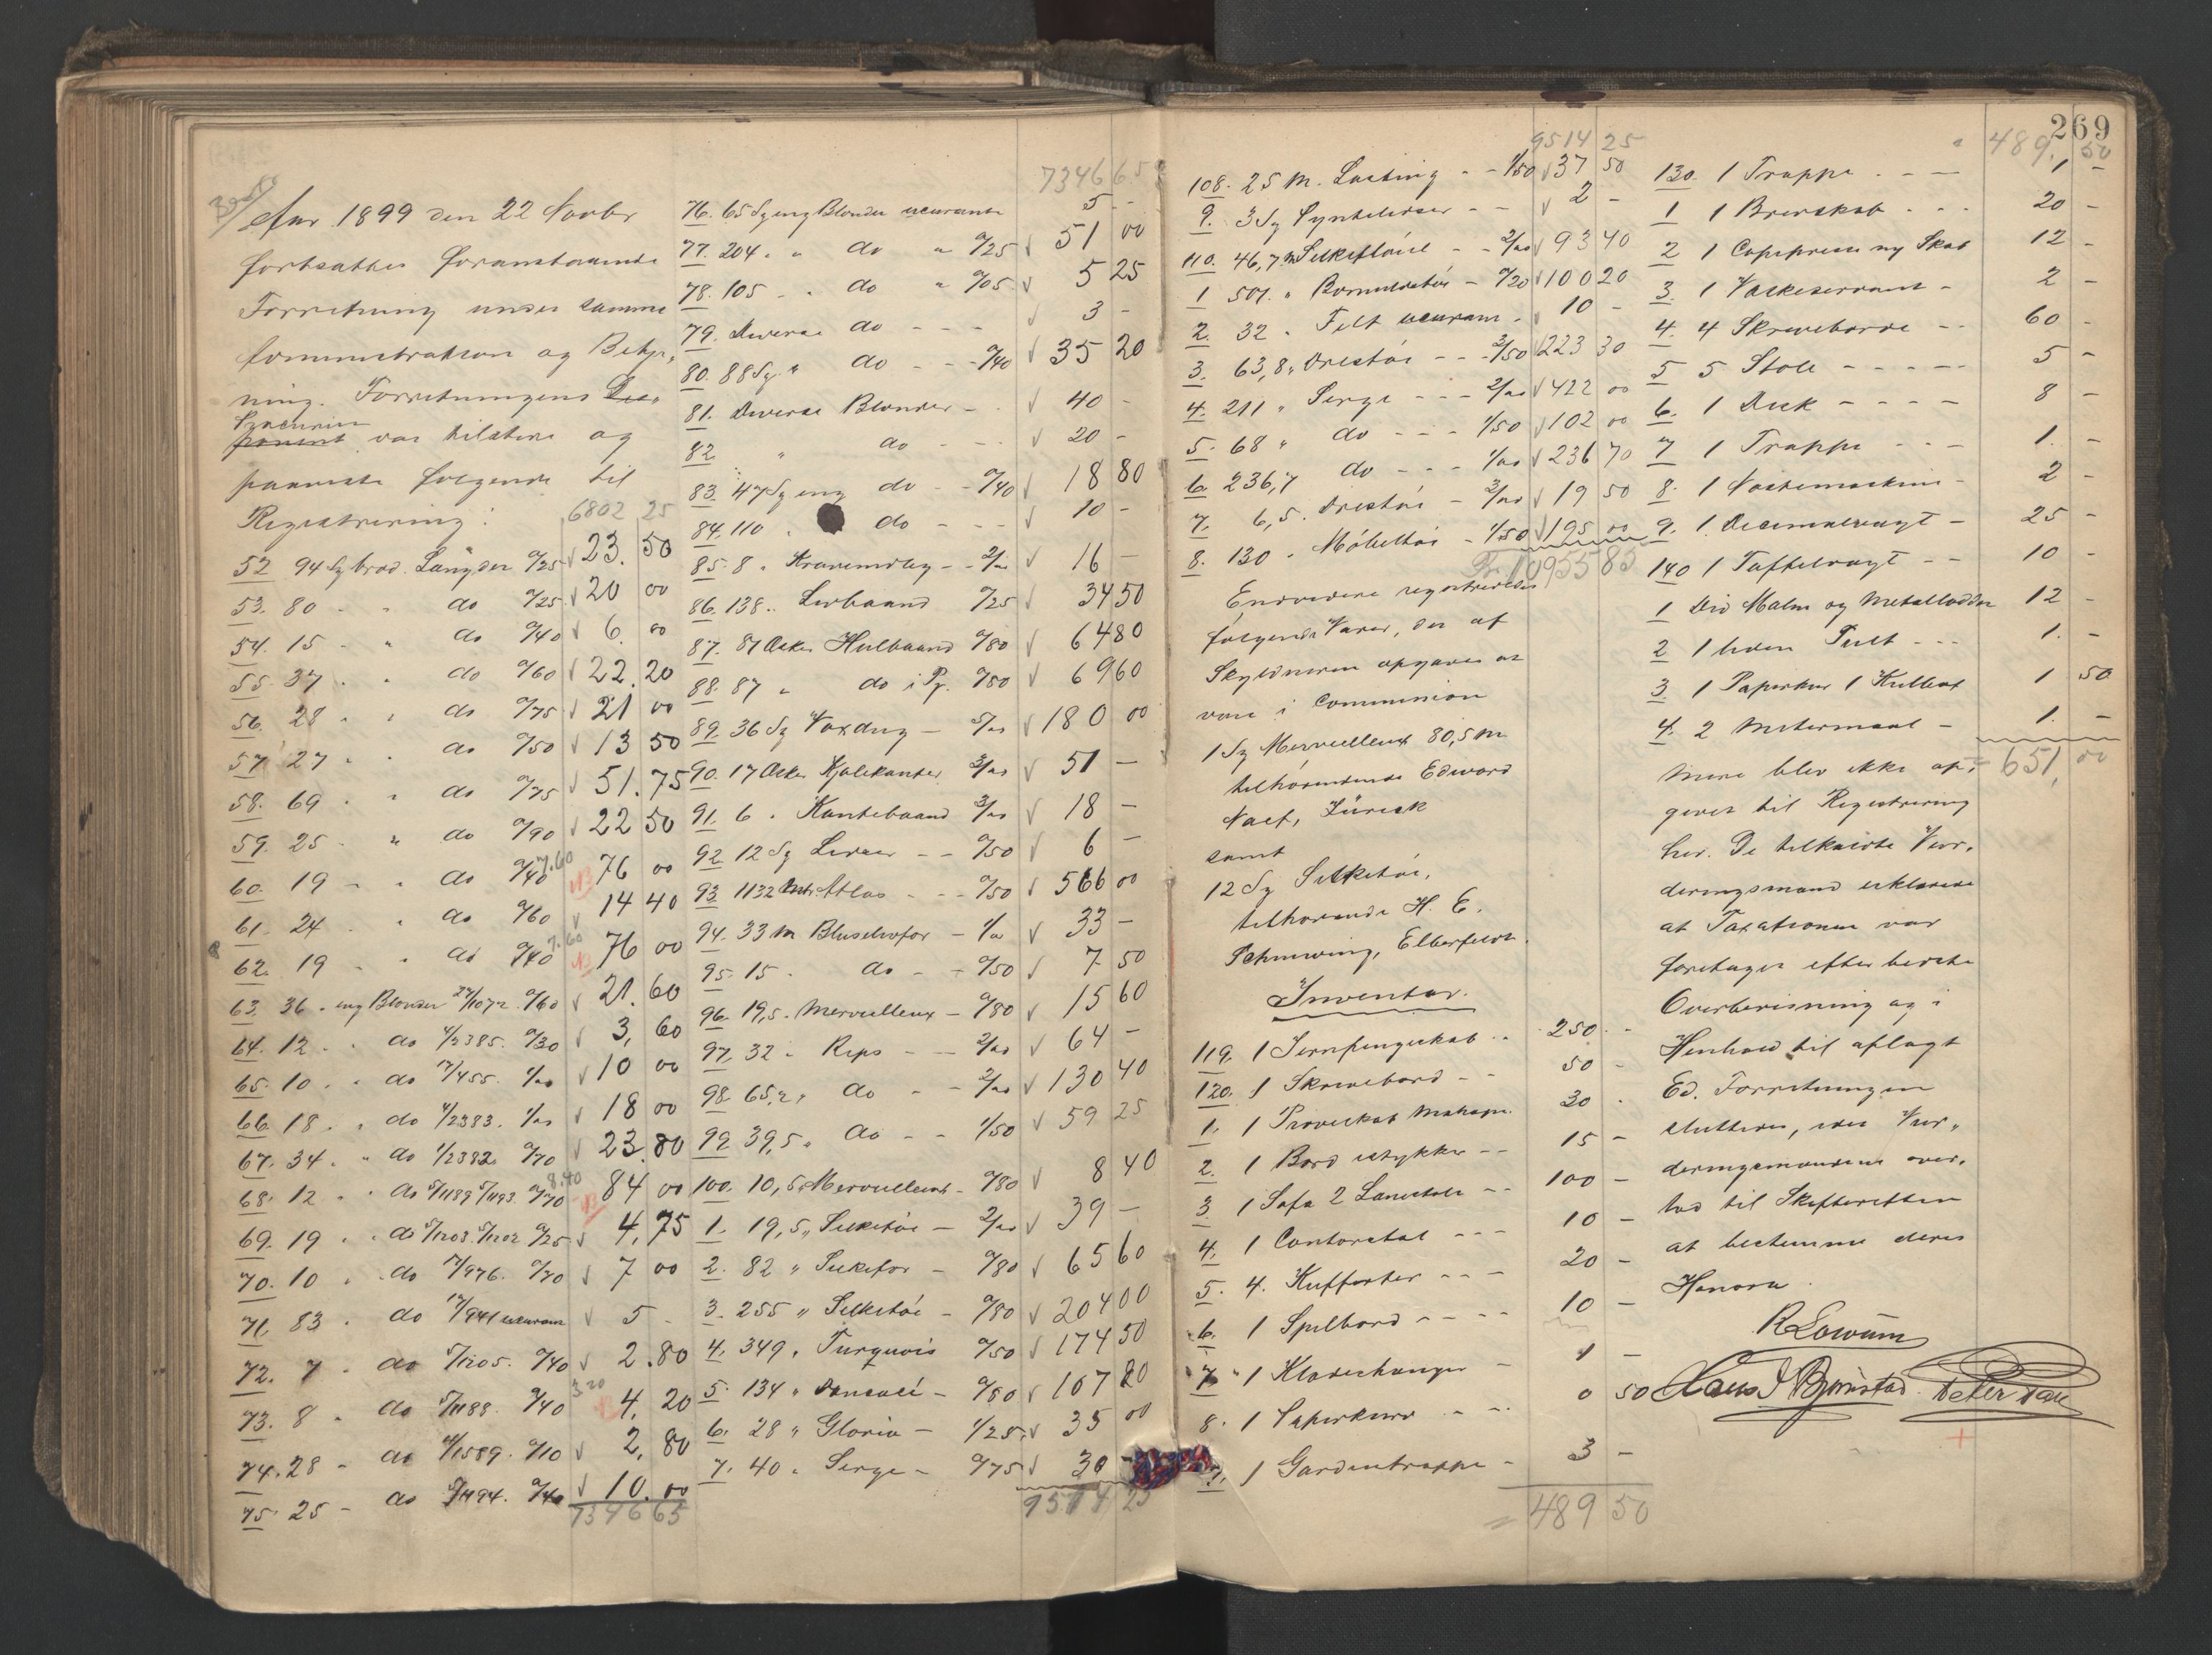 Aar 1899 den 22 Novbr
fortsattes foranstaaende
Forretning under samme
Administration og Betje-
ning. Forretningens
var tilstede og
paaviste følgende til
Registrering:
6802 25
52 94 Sz brod. Längder 0/25 23.50
53. 80 - " do 0/25 20 00
54. 15 - " do 0/40 6. 00
55. 37 . " do 0/60 22.20
56. 28 " " do 0/75 21 00
57. 27 " . do 0/50 13 50
58. 69 . " do 0/75 51.75
59. 25 - " do 0/90 22 50
60. 19 - " do 0/40 7.60 76 00
61. 24 . do 0/60 14 40
62. 19 . " do 0/40 7.60 76 00
63. 36 . eng Blonder 0/60 21.60
64. 12 . " do 4/2385. 0/30 3,60
65. 10 . . do 1/00 10 00
66. 18 . . do 4/2383. 1/00 18 00
67. 34 . " do 0/70 23.80
68. 12 . " do 0/70 8.40 84 00
69. 19 . . do 0/25 4,75
70. 10 . . do 0/70 7 00
71. 83 . do ucurant 5 -
72. 7 . do 5/1205. 0/40 2.80
73. 8 " do 5/1188. 0/40 3.20 4,20
74. 28 - do 0/10 2,80
75. 25 - do 0/40 10.00
7346 65
7346 65
76. 65 Sz eng Blonder ucurante 5 -
77. 204 . " do " 0/25 51 00
78. 105 . . do " 0/05 5 25
79. Diverse do - - - 3 -
80. 88 Sz " do - - 0/40 35 20
81. Diverse Blonder - . 40 -
82 " do - - - 20 -
83. 47 Sz eng do - - 0/40 18 80
84. 110 . do - - - 10 -
85. 8 . Kravendlæg - - 2/00 16 -
86. 138 . . Livbaand 0/25 34 50
87. 81 Æsker Hulbaand 0/80 64 80
88. 87 " do i Pz. 0/80 69 60
89. 36 Sz Voxdug - 5/00 180 00
90. 17 Æsker Kjolekanter 3/00 51 -
91. 6 . Kantebaand 3/00 18 -
92. 12 Sz Lidser - - 0/50 6 -
93. 1132 Mtr Atlas - - - 0/50 566 00
94. 33 m Bluselvfor - 1/00 33 -
95. 15 . do - - 0/50 7 50
96. 19,5 . Merveilleux - 0/80 15 60
97. 32 " Rips - - - 2/00 64 -
98. 65,2 " do - - 2/00 130 40
99. 39,5 " do - - 1/50 59 25
100. 10,5 " Merveilleux - 0/80 8 40
1. 19,5 " Silketöi - 2/00 39 -
2. 82 " Silkefor - 0/80 65 60
3. 255 " Silketöi - 0/80 204 00
4. 349 " Turquois 0/50 174 50
5. 134 " - 0/80 107 20
6. 28 " Gloria - 1/25 35 00
7. 40 " Serge - 0/75 30 -
9514 25
269
9514 25
108. 25 m. Lasting - - 1/50 37 50
9. 3 Sz - - 2 -
110. 46,7 m Silkefløiel - - 2/00 93 40
1 501. " Bomuldstöi - 0/20 100 20
2. 32 . Filt ucurant . 10 -
3. 63,8 " Drestöi - - - 3/50 223 30
4. 211 " Serge - - - 2/00 422 00
5. 68 " do - - - 1/50 102 00
6. 236,7 do - - - 1/00 236 70
7. 6,5 . Drestöi - 3/00 19 50
8. 130 . Möbeltöi - 1/50 195 00
Endvidere registreredes
følgende Varer, der af
Skyldneren opgaves at
være i Commission
1 Sz Merveilleux 80,5 m
tilhørendende Edward
Naef, Zürich
samt
12 Sz Silketöi,
tilhørende H. E.
Schniewing, Elberfeldt.
Inventar.
119. 1 Jernpengeskab . . 250 -
120. 1 Skrivebord - - 50 -
1. 1 Prøveskab Mahogni. 30 -
2. 1 Bord istykker - - 15 -
3 1 Sofa 2 Lænestole - - 100 -
4. 1 Contorstol - - - 10 -
5. 4. Kufferter - - - 20 -
6. 1 Spilbord - - - - 10 -
7. 1 Klædeshænger - 1 -
8. 1 Papirkurv - - . 0 50
9. 1 Gardentrappe - 3 -
= 489 50
489, 50
130. 1 Trappe . - - 1 -
1 1 Brevskab - - - 20 -
2 1 Copipresse og Skab 12 -
3. 1 Vaskeservant - 2 -
4. 4 Skriveborde - - 60 -
5 5 Stole - - - - - 5 -
6. 1 Disk - - - - 8 -
7 1 Trappe - - - 1. -
8. 1 Nøstemaskine - 2 -
9. 1 Decimalvægt - 25 -
140 1 Taffelvægt - - 10 -
1 Div Malm og Metallodder 12 -
2 1 liden Pult - - - 1. -
3 1 Papirkurv 1 Kulbox 1 50
4. 2 Metermaal - 1. -
651, 00
Mere blev ikke op-
givet til Registrering
her. De tilkaldte Vur-
deringsmænd erklærede
at Taxationen var
foretaget efter bedste
Overbevisning og i
Henhold til aflagt
Ed. Forretningen
sluttedes, idet Vur-
deringsmændene over-
lod til Skifteretten
at bestemme deres
Honorar.
Hans J Bjørnstad.